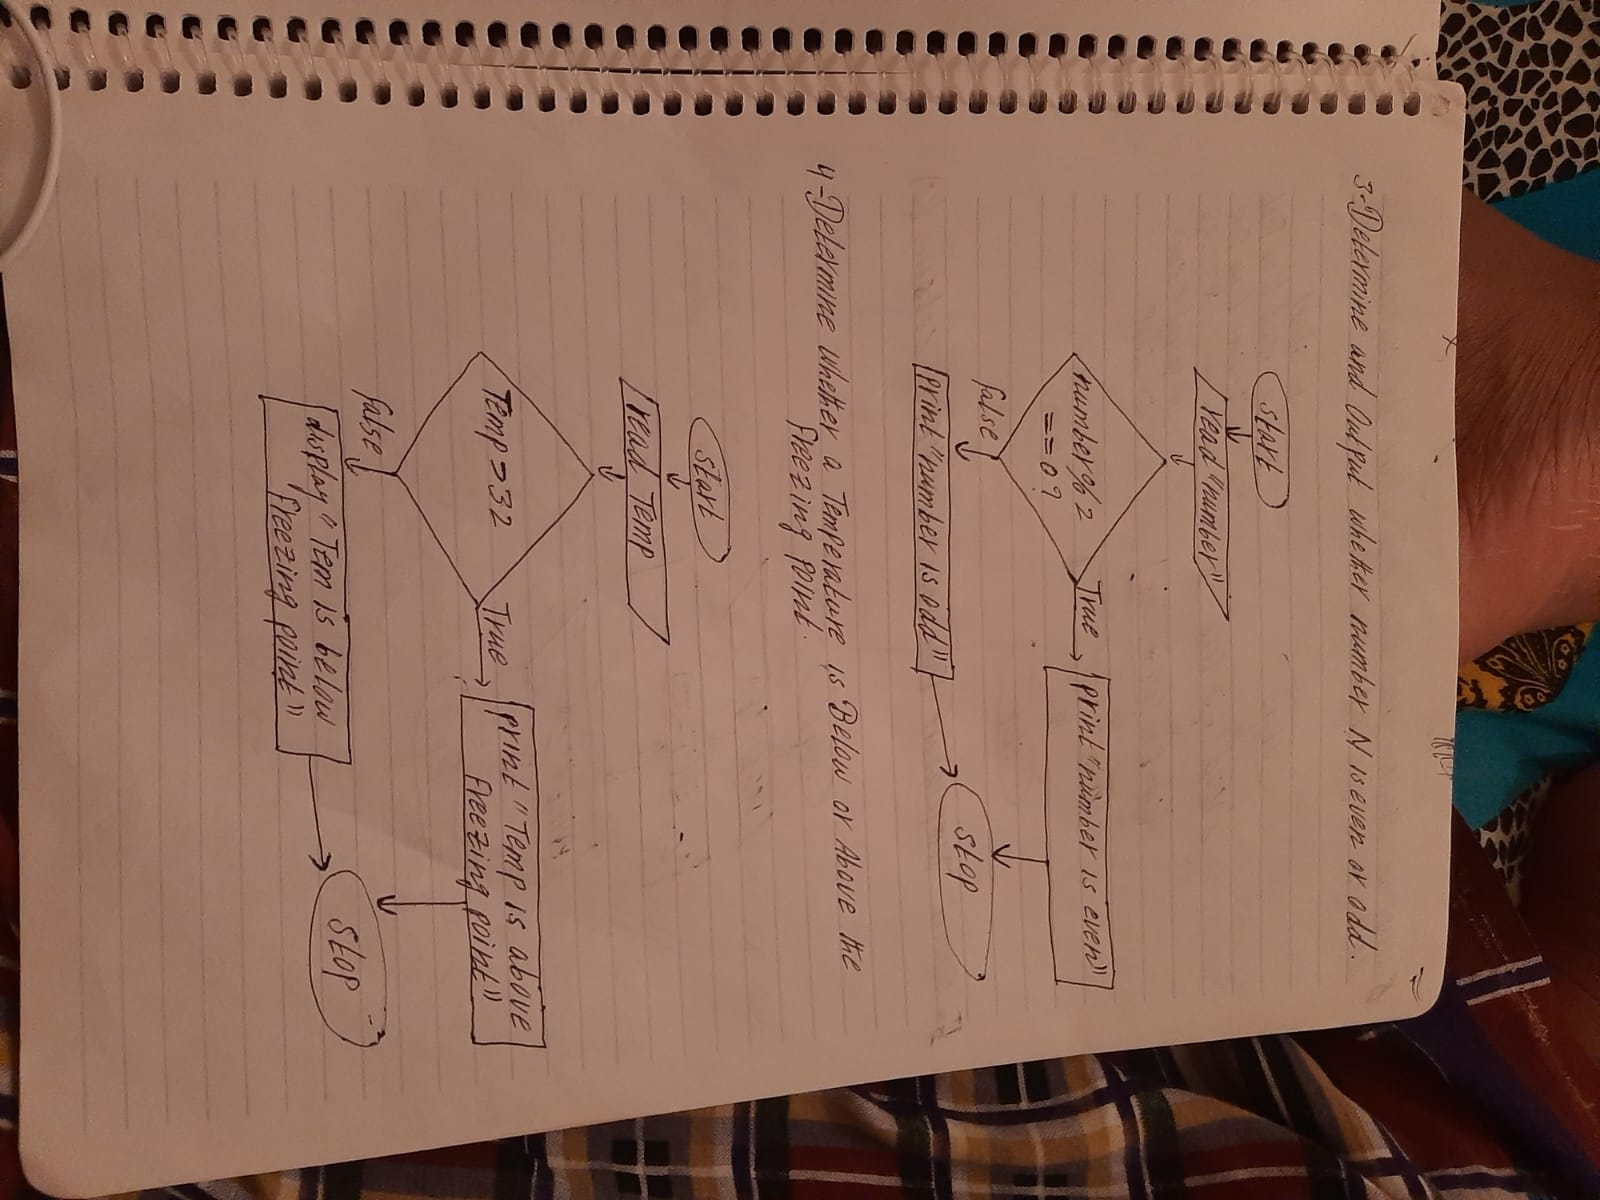 3-Determine and Output whether number N is even or odd.
start
read "number"
number%2
==0?
True
print "number is even"
false
print "number is odd"
Stop
4-Determine whether a Temperature is Below or Above the
freezing point.
start
read Temp
Temp>32
True
print "Temp is above
freezing point"
false
display "Tem is below
freezing point"
Stop